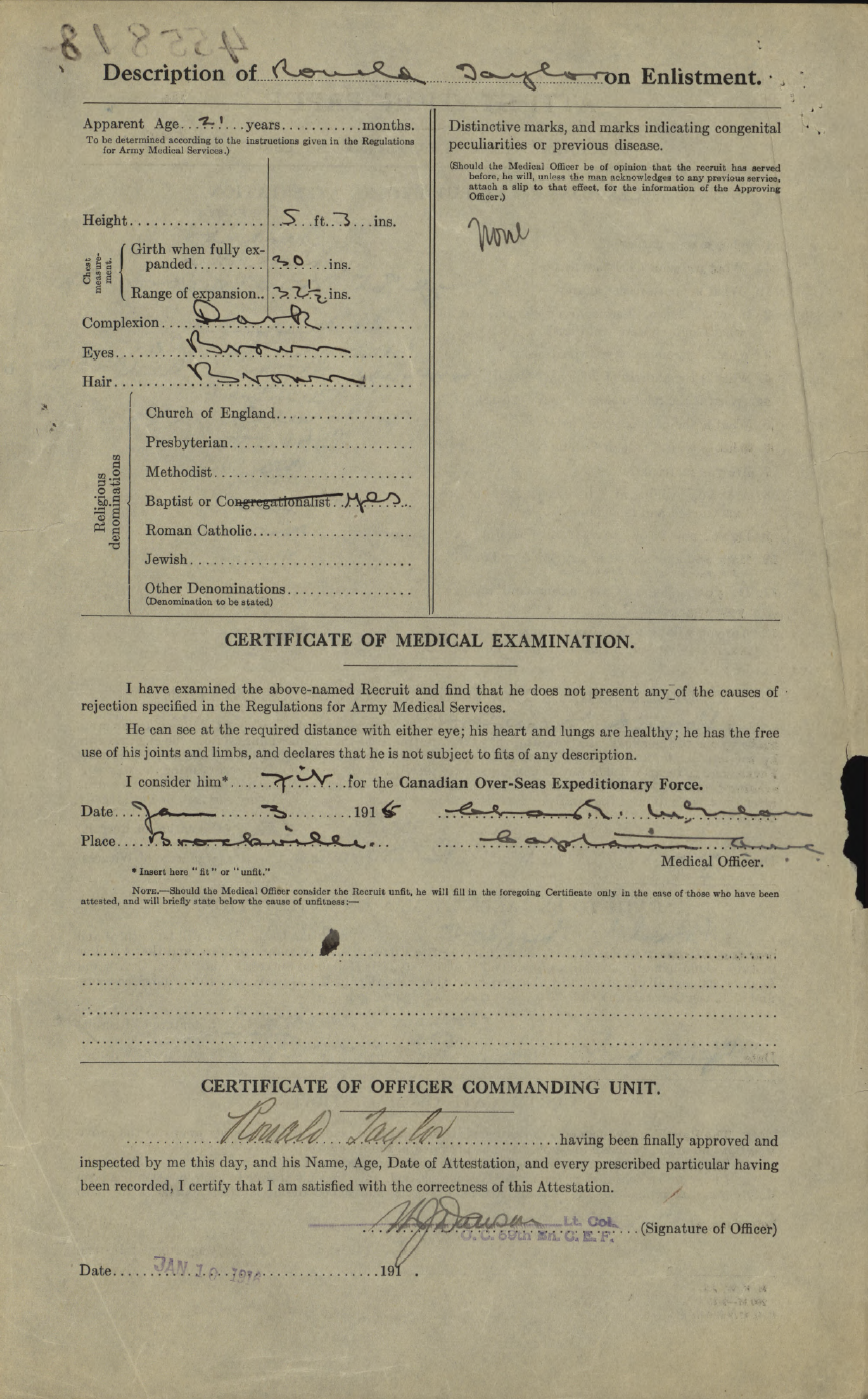 Description of Ronald Taylor on Enlistment.
Apparent Age 21 years months.
To be determined according to the instructions given in the Regulations
for Army Medical Services.)
Height 5 ft. 3 ins.
Chest measure-ment.
Girth when fully ex-
panded 30 ins.
Range of expansion 32½ ins.
Complexion Dark
Eyes Brown
Hair Brown
Religious denominations
Church of England
Presbyterian
Methodist
Baptist or Congregationalist Yes
Roman Catholic
Jewish
Other Denominations
(Denomination to be stated)
Distinctive marks, and marks indicating congenital
peculiarities or previous disease.
(Should the Medical Officer be of opinion that the recruit has served
before, he will, unless the man acknowledges to any previous service,
attach a slip to that effect, for the information of the Approving
Officer.)
None
CERTIFICATE OF MEDICAL EXAMINATION.
I have examined the above-named Recruit and find that he does not present any of the causes of
rejection specified in the Regulations for Army Medical Services.
He can see at the required distance with either eye; his heart and lungs are healthy; he has the free
use of his joints and limbs, and declares that he is not subject to fits of any description.
I consider him* fit for the Canadian Over-Seas Expeditionary Force.
Date Jan 3 1916
Place Brockville. Captain
Medical Officer.
* Insert here "fit" or "unfit."
NOTE.—Should the Medical Officer consider the Recruit unfit, he will fill in the foregoing Certificate only in the case of those who have been
attested, and will briefly state below the cause of unfitness:—
CERTIFICATE OF OFFICER COMMANDING UNIT.
Ronald Taylor having been finally approved and
inspected by me this day, and his Name, Age, Date of Attestation, and every prescribed particular having
been recorded, I certify that I am satisfied with the correctness of this Attestation.
Lt. Col.
(Signature of Officer)
O. C. 59th Bn. C. E. F.
Date JAN 10 191 .